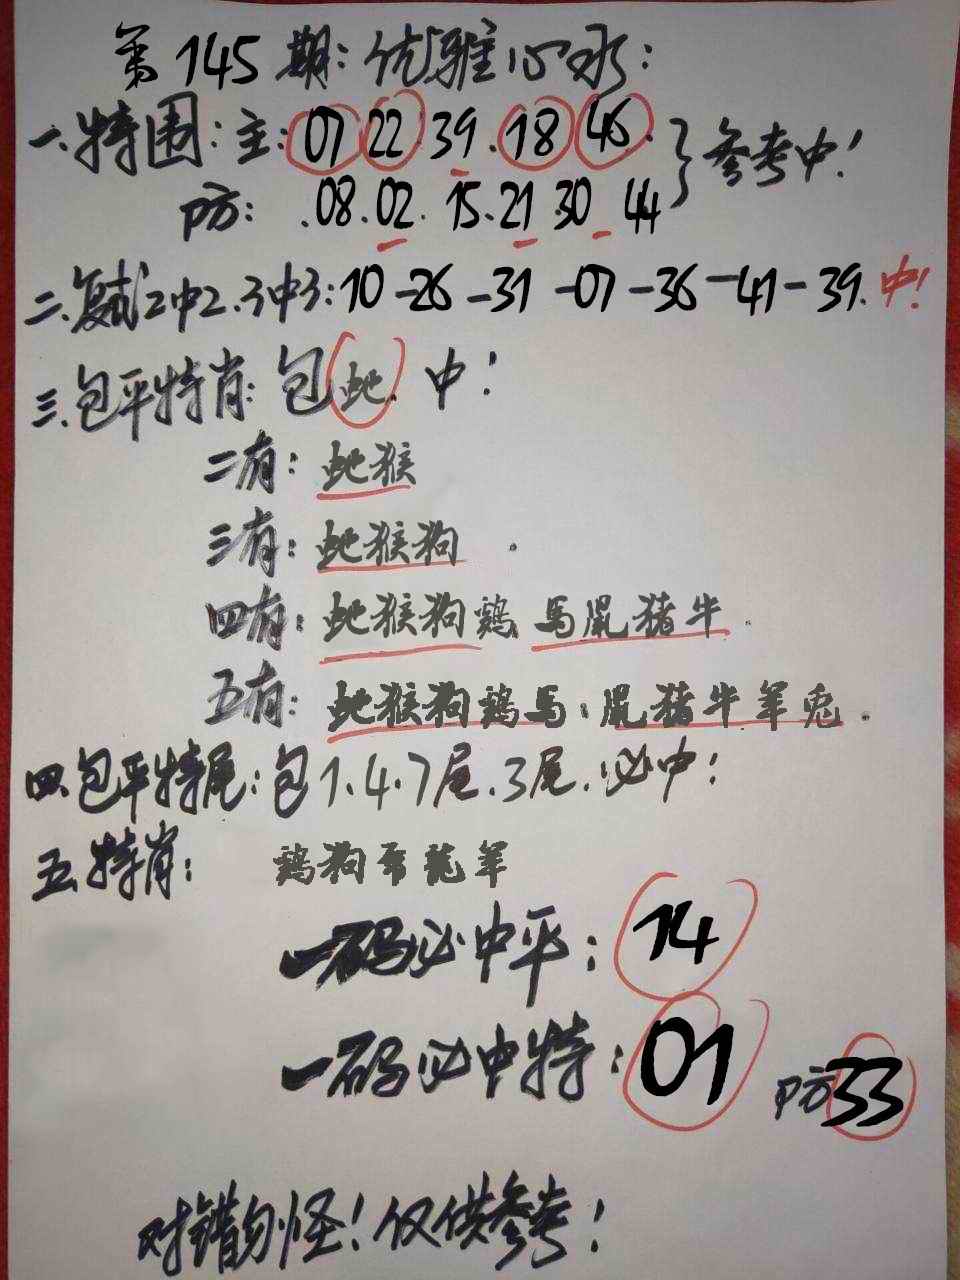 第145期:优雅心水:
一.特围:主:07.22.39.18.46.
防:.08.02.15.21.30.44
}参考中!
二.复式2中2.3中3:10-26-31-07-36-41-39.中!
三.包平特肖:包蛇.中!
二有:蛇猴
三有:蛇猴狗.
四有:蛇猴狗鷄.馬鼠猪牛.
五有:蛇猴狗鷄馬:鼠猪牛羊兎.
四.包平特尾:包1.4.7尾.3尾.必中!
五.特肖:鷄狗龍羊
一码必中平:14
一码必中特:01 防33
对错勿怪!仅供参考!